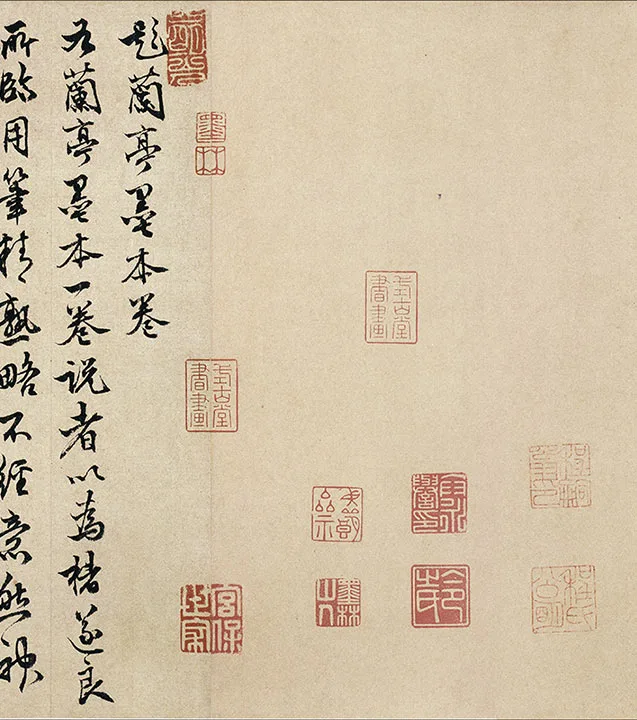 題蘭亭墨本卷
右蘭亭墨本一卷說者以為褚遂良
所臨用筆精熟略不經意然神
墨林
式古堂書畫
式古堂書畫
宮保世家
墨林山人